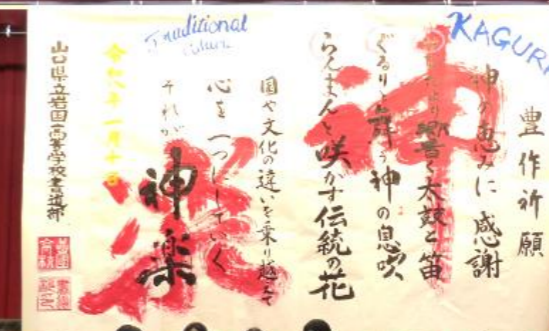 KAGURA
Traditional
Culture
豊作祈願
神の恵みに感謝
響く太鼓と笛
ぐるりと舞う神の息吹
らんまんと咲かす伝統の花
国や文化の違いを乗り越えて
心を一つにしていく
それが
神楽
神楽
令和八年一月十日
山口県立岩国高等学校書道部